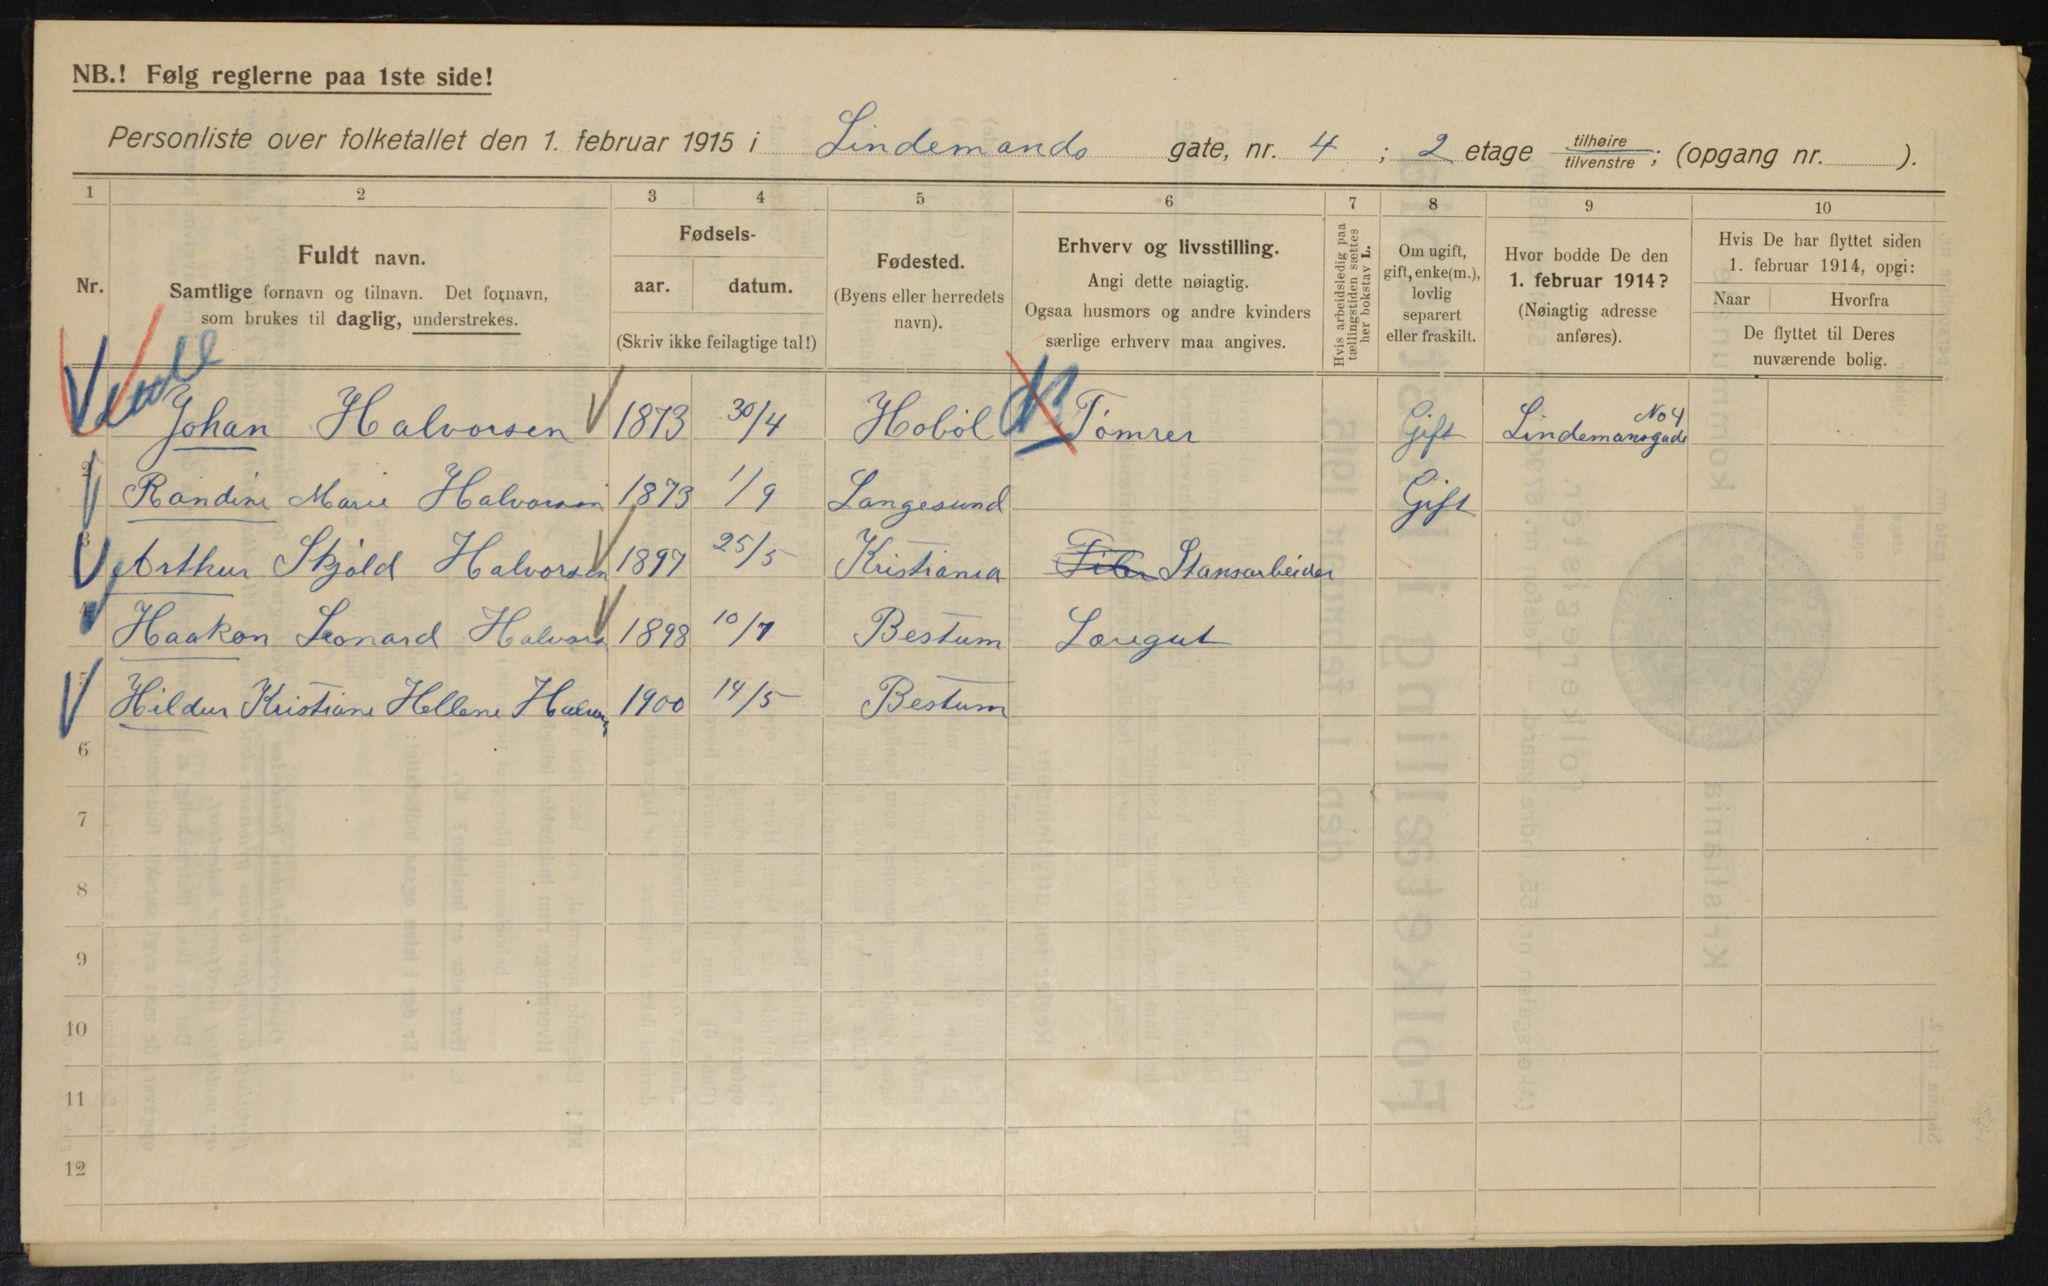 NB.! Følg reglerne paa 1ste side!
Personliste over folketallet den 1. februar 1915 i Lindemands gate, nr. 4 ; 2 etage tilhøire / tilvenstre ; (opgang nr. ).
1 2 3 4 5 6 7 8 9 10
Nr.
Fuldt navn.
Samtlige fornavn og tilnavn. Det fornavn,
som brukes til daglig, understrekes.
Fødsels-
aar. datum.
(Skriv ikke feilagtige tal!)
Fødested.
(Byens eller herredets
navn).
Erhverv og livsstilling.
Angi dette nøiagtig.
Ogsaa husmors og andre kvinders
særlige erhverv maa angives.
Hvis arbeidsledig paa
tællingstiden sættes
her bokstav L.
Om ugift,
gift, enke(m.),
lovlig
separert
eller fraskilt.
Hvor bodde De den
1. februar 1914?
(Nøiagtig adresse
anføres).
Hvis De har flyttet siden
1. februar 1914, opgi:
Naar Hvorfra
De flyttet til Deres
nuværende bolig.
Johan Halvorsen 1873 30/4 Hobøl Tømrer Gift Lindemansgade No 4
2 Randine Marie Halvorsen 1873 1/9 Langesund Gift
3 Arthur Skjold Halvorsen 1897 25/5 Kristiania Stansarbeider
4 Haakon Leonard Halvors 1898 10/7 Bestum Læregut
5 Hildur Kristiane Hellene Halvors 1900 14/5 Bestum
6
7
8
9
10
11
12